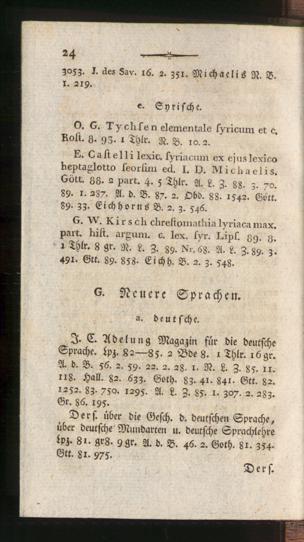 24
3053. J. des Sav. 16. 2. 351. Michaelis N. B.
1. 219.
e. Syrische.
O. G. Tychsen elementale syricum et c.
Rost. 8. 93. 1 Thlr. N. B. 10. 2.
E. Castelli lexic. syriacum ex ejus lexico
heptaglotto seorsim ed. I. D. Michaelis.
Gött. 88. 2 part. 4. 5 Thlr. A. L. Z. 88. 3. 70.
89. 1. 287. A. d. B. 87. 2. Obd. 88. 1542. Gött.
89. 33. Eichhorns B. 2. 3. 546.
G. W. Kirsch chrestomathia syriaca max.
part. hist. argum. c. lex. syr. Lips. 89. 8.
1 Thlr. 8 gr. N. L. Z. 89. Nr. 68. A. L. Z. 89. 3.
491. Gtt. 89. 858. Eichh. B. 2. 3. 548.
G. Neuere Sprachen.
a. deutsche.
J. C. Adelung Magazin für die deutsche
Sprache. Lpz. 82—85. 2 Bde 8. 1 Thlr. 16 gr.
A. d. B. 56. 2. 59. 22. 2. 28. 1. N. L. Z. 85. 11.
118. Hall. 82. 633. Goth. 83. 41. 841. Gtt. 82.
1252. 83. 750. 1295. A. L. Z. 85. 1. 307. 2. 283.
Gr. 86. 195.
Ders. über die Gesch. d. deutschen Sprache,
über deutsche Mundarten u. deutsche Sprachlehre
Lpz. 81. gr8. 9 gr. A. d. B. 46. 2. Goth. 81. 354.
Gtt. 81. 975.
Ders.